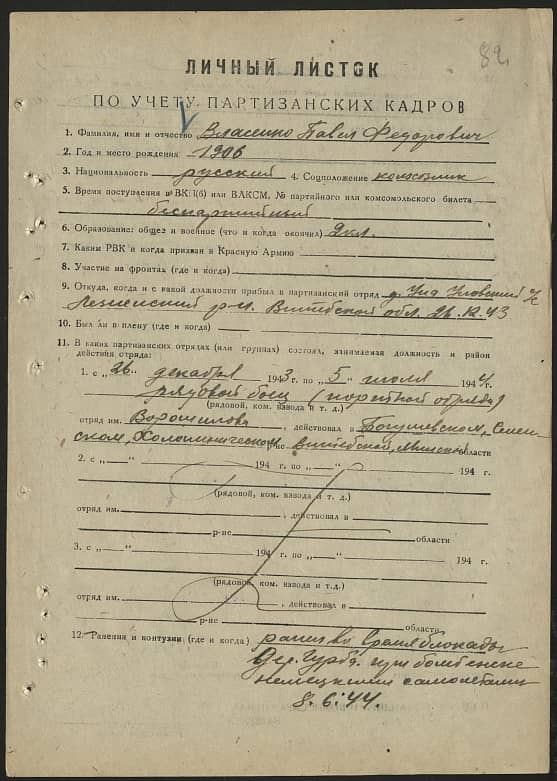 82
ЛИЧНЫЙ ЛИСТОК
ПО УЧЕТУ ПАРТИЗАНСКИХ КАДРОВ
1. Фамилия, имя и отчество Власенко Павел Федорович
2. Год и место рождения 1906
3. Национальность русский 4. Соцположение колхозник
5. Время поступления в ВКП(б) или ВЛКСМ, № партийного или комсомольского билета
беспартийный
6. Образование: общее и военное (что и когда окончил) 2 кл.
7. Каким РВК и когда призван в Красную Армию
8. Участие на фронтах (где и когда)
9. Откуда, когда и с какой должности прибыл в партизанский отряд д.
р-н. Витебской обл. 26.12.43
10. Был ли в плену (где и когда)
11. В каких партизанских отрядах (или группах) состоял, занимаемая должность и район
действия отряда:
1. с „26“ декабря 1943 г. по „5“ июля 1944 г.
рядовой боец
(рядовой, ком. взвода и т. д.)
отряд им. Ворошилова, действовал в Богушевском, Сенненском, Холопиничском р-не Витебской, Минской области
2. с „—“ 194 г. по „—“ 194 г.
(рядовой, ком. взвода и т. д.)
отряд им. , действовал в
р-не области
3. с „—“ 194 г. по „—“ 194 г.
(рядовой, ком. взвода и т.д.)
отряд им. , действовал в
р-не области
12. Ранения и контузии (где и когда) ранен во время блокады
дер. при бомбежке
немецкими самолетами
8.6.44.